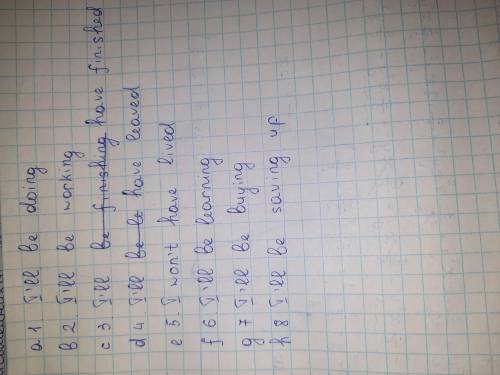 a 1 I'll be doing
b 2. I'll be working
c 3. I'll be finishing have finished
d 4. I'll be le have leaved
e 5. I won't have lived
f 6 I'll be learning
g 7 I'll be buying
h 8 I'll be saving up